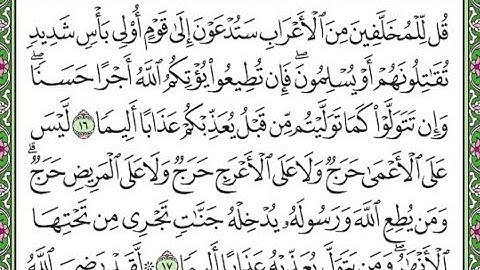 قُل لِّلْمُخَلَّفِينَ مِنَ ٱلْأَعْرَابِ سَتُدْعَوْنَ إِلَىٰ قَوْمٍ أُو۟لِى بَأْسٍ شَدِيدٍ
تُقَـٰتِلُونَهُمْ أَوْ يُسْلِمُونَ ۖ فَإِن تُطِيعُوا۟ يُؤْتِكُمُ ٱللَّهُ أَجْرًا حَسَنًا ۖ
وَإِن تَتَوَلَّوْا۟ كَمَا تَوَلَّيْتُم مِّن قَبْلُ يُعَذِّبْكُمْ عَذَابًا أَلِيمًا ١٦ لَّيْسَ
عَلَى ٱلْأَعْمَىٰ حَرَجٌ وَلَا عَلَى ٱلْأَعْرَجِ حَرَجٌ وَلَا عَلَى ٱلْمَرِيضِ حَرَجٌ ۗ
وَمَن يُطِعِ ٱللَّهَ وَرَسُولَهُۥ يُدْخِلْهُ جَنَّـٰتٍ تَجْرِى مِن تَحْتِهَا
ٱلْأَنْهَـٰرُ ۖ وَمَن يَتَوَلَّ يُعَذِّبْهُ عَذَابًا أَلِيمًا ١٧ ۞ لَّقَدْ رَضِىَ ٱللَّهُ